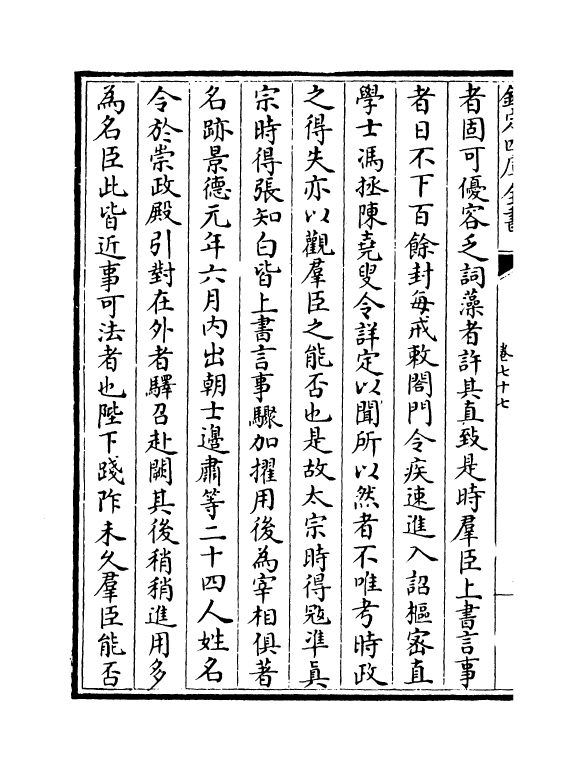 欽定四庫全書
卷七十七
者固可優容乏詞藻者許其直致是時羣臣上書言事
者日不下百餘封每戒敕閤門令疾速進入詔樞密直
學士馮拯陳堯叟令詳定以聞所以然者不唯考時政
之得失亦以觀羣臣之能否也是故太宗時得冦準眞
宗時得張知白皆上書言事驟加擢用後為宰相俱著
名跡景德元年六月內出朝士邊肅等二十四人姓名
令於崇政殿引對在外者驛召赴闕其後稍稍進用多
為名臣此皆近事可法者也陛下踐阼未久羣臣能否